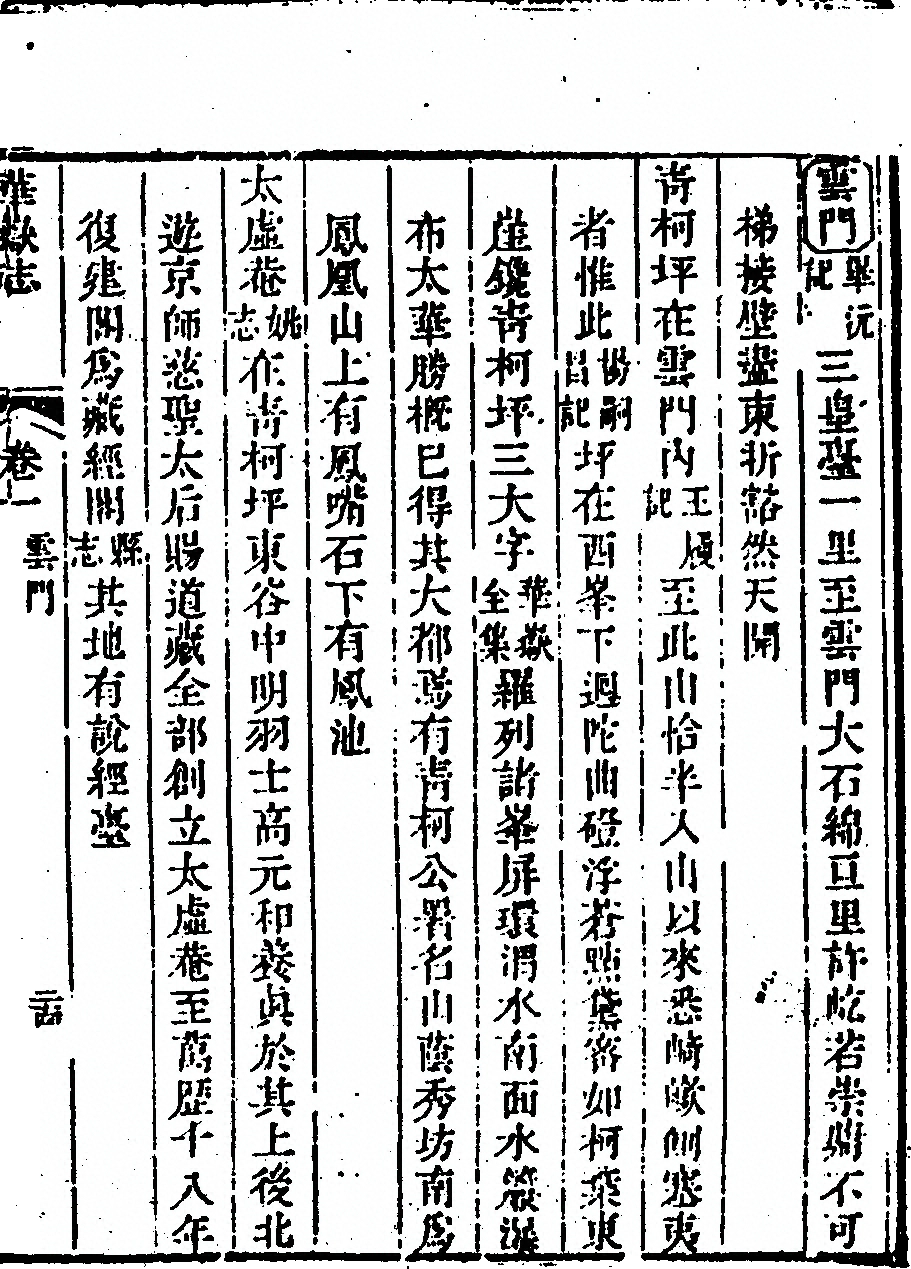 雲門畢沅記三皇臺一里至雲門大石綿亘里許屹若崇墉不可
梯接壁盡東折豁然天開
青柯坪在雲門內王履記至此山恰半入山以來悉崎嶔側塞夷
者惟此楊嗣昌記坪在西峯下迴陀曲磴浮蒼點黛密如柯葉東
崖鐫青柯坪三大字華嶽全集羅列諸峯屏環渭水南面水簾瀑
布太華勝概已得其大都焉有青柯公署名山蔭秀坊南為
鳳凰山上有鳳嘴石下有鳳池
太虛菴姚志在青柯坪東谷中明羽士高元和養真於其上後北
遊京師慈聖太后賜道藏全部創立太虛菴至萬歷十八年
復建閣為藏經閣縣志其地有說經臺
華嶽志 卷一 雲門 二十四